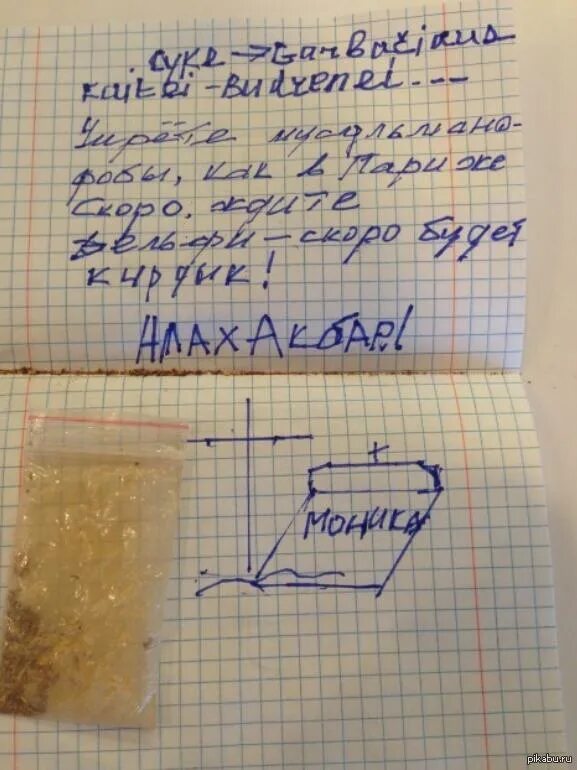 суке → Garbačiaus
kaikei - Budrenei...---
Умрёте мусульмано-
фобы, как в Париже
Скоро, ждите
Дельфи - скоро будет
кирдык!
АЛАХ АКБАР!
+
МОНИКА
pikabu.ru